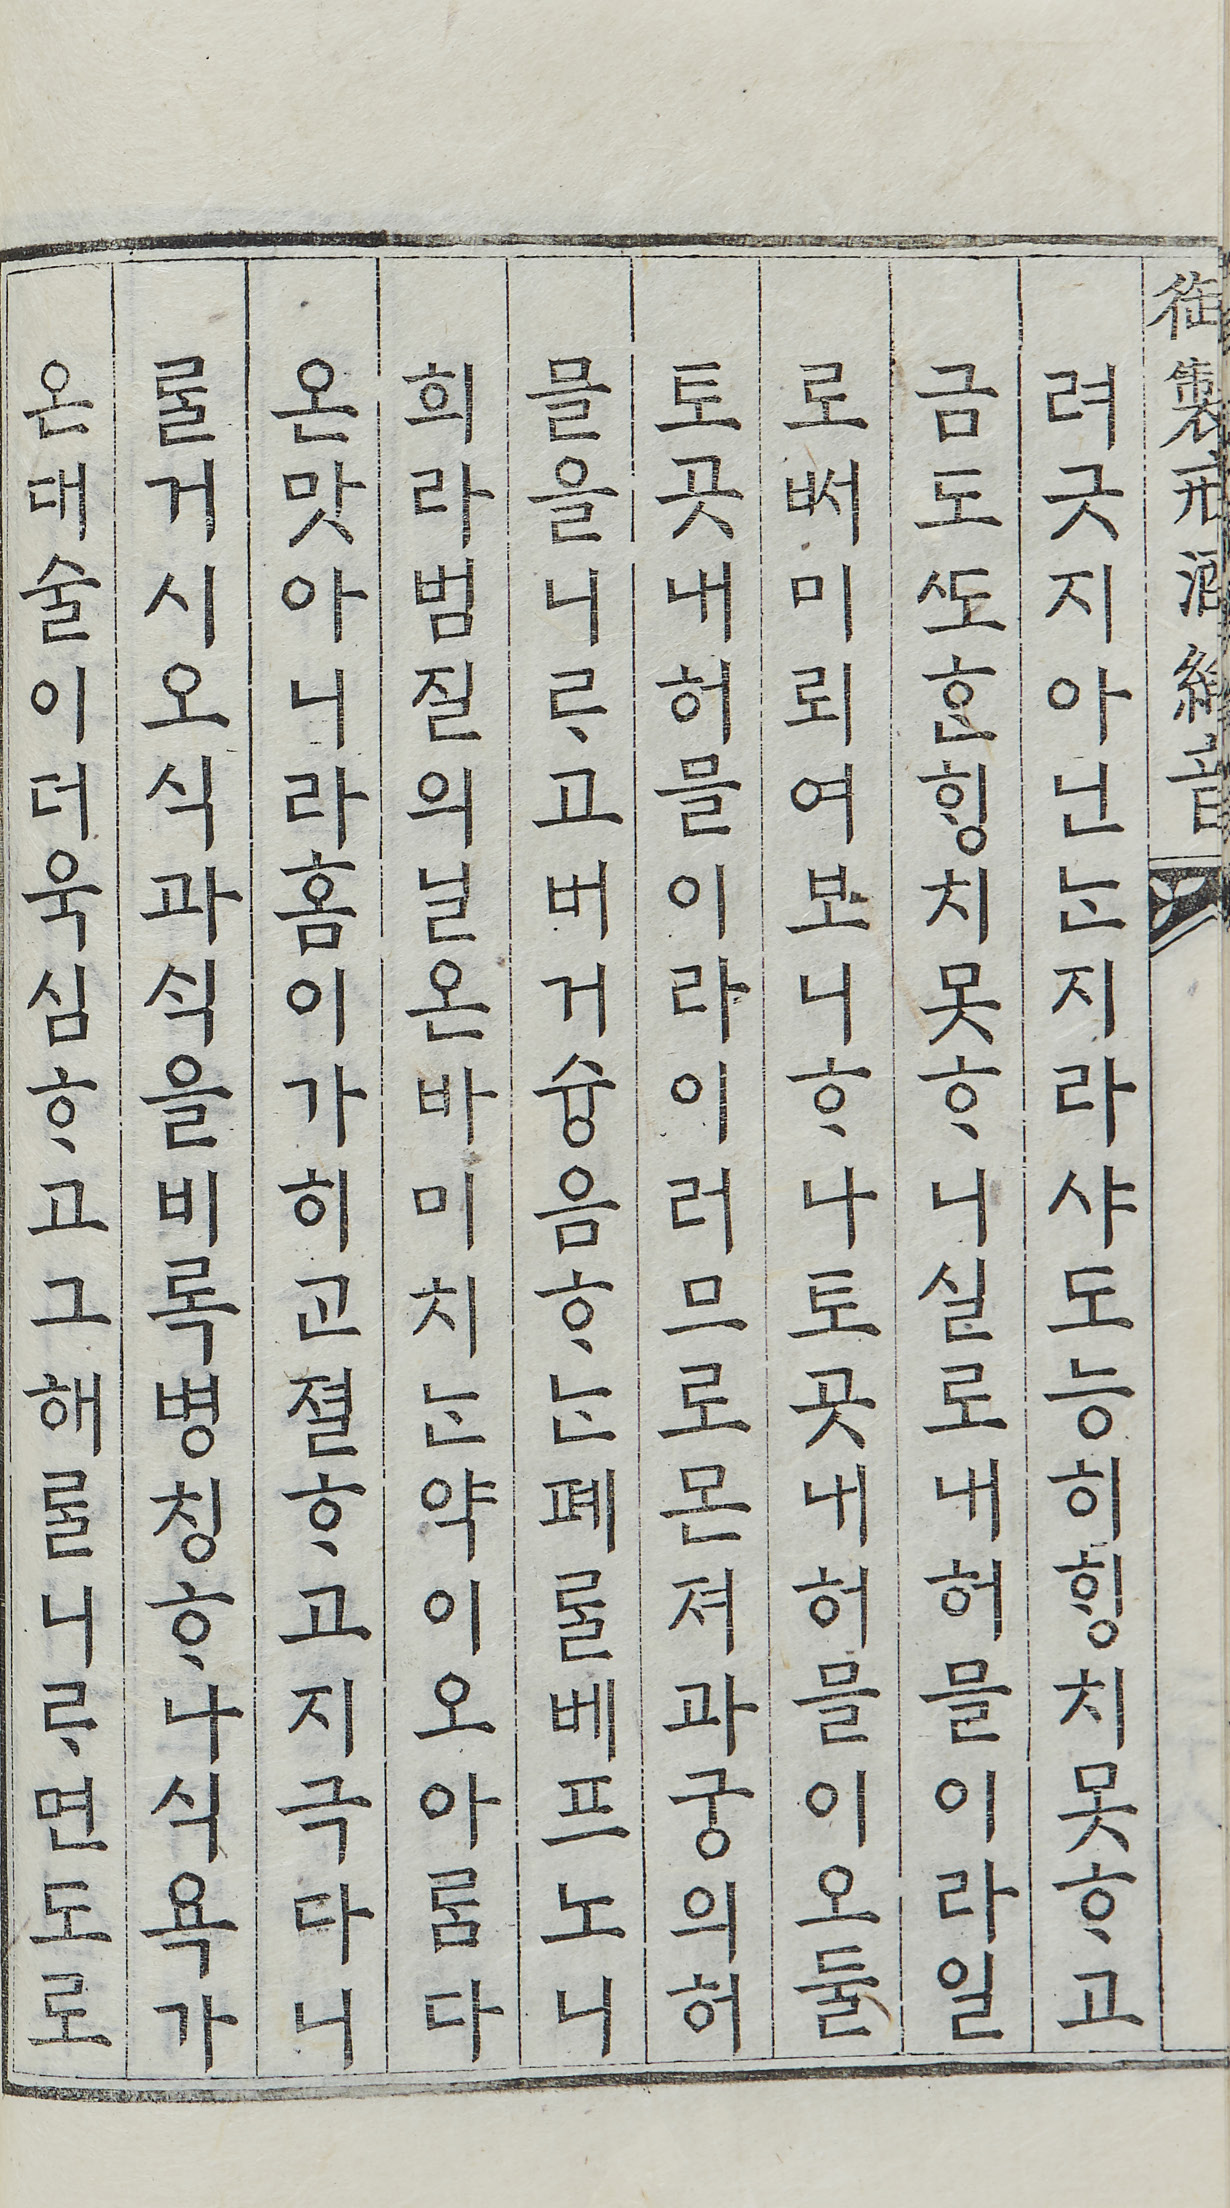 御製戒酒綸音
려긋지아닌ᄂᆞᆫ지라샤도능히ᄒᆡᆼ치못ᄒᆞ고
금도ᄯᅩᄒᆞᆫᄒᆡᆼ치못ᄒᆞ니실로내허믈이라일
로ᄡᅥ미뢰여보니ᄒᆞ나토곳내허믈이오둘
토곳내허믈이라이러므로몬져과궁의허
믈을니ᄅᆞ고버거슝음ᄒᆞᄂᆞᆫ폐ᄅᆞᆯ베프노니
희라범질의닐온바미치ᄂᆞᆫ약이오아ᄅᆞᆷ다
온맛아니라홈이가히고졀ᄒᆞ고지극다니
ᄅᆞᆯ거시오식과식을비록병칭ᄒᆞ나식욕가
온대술이더욱심ᄒᆞ고그해ᄅᆞᆯ니ᄅᆞ면도로